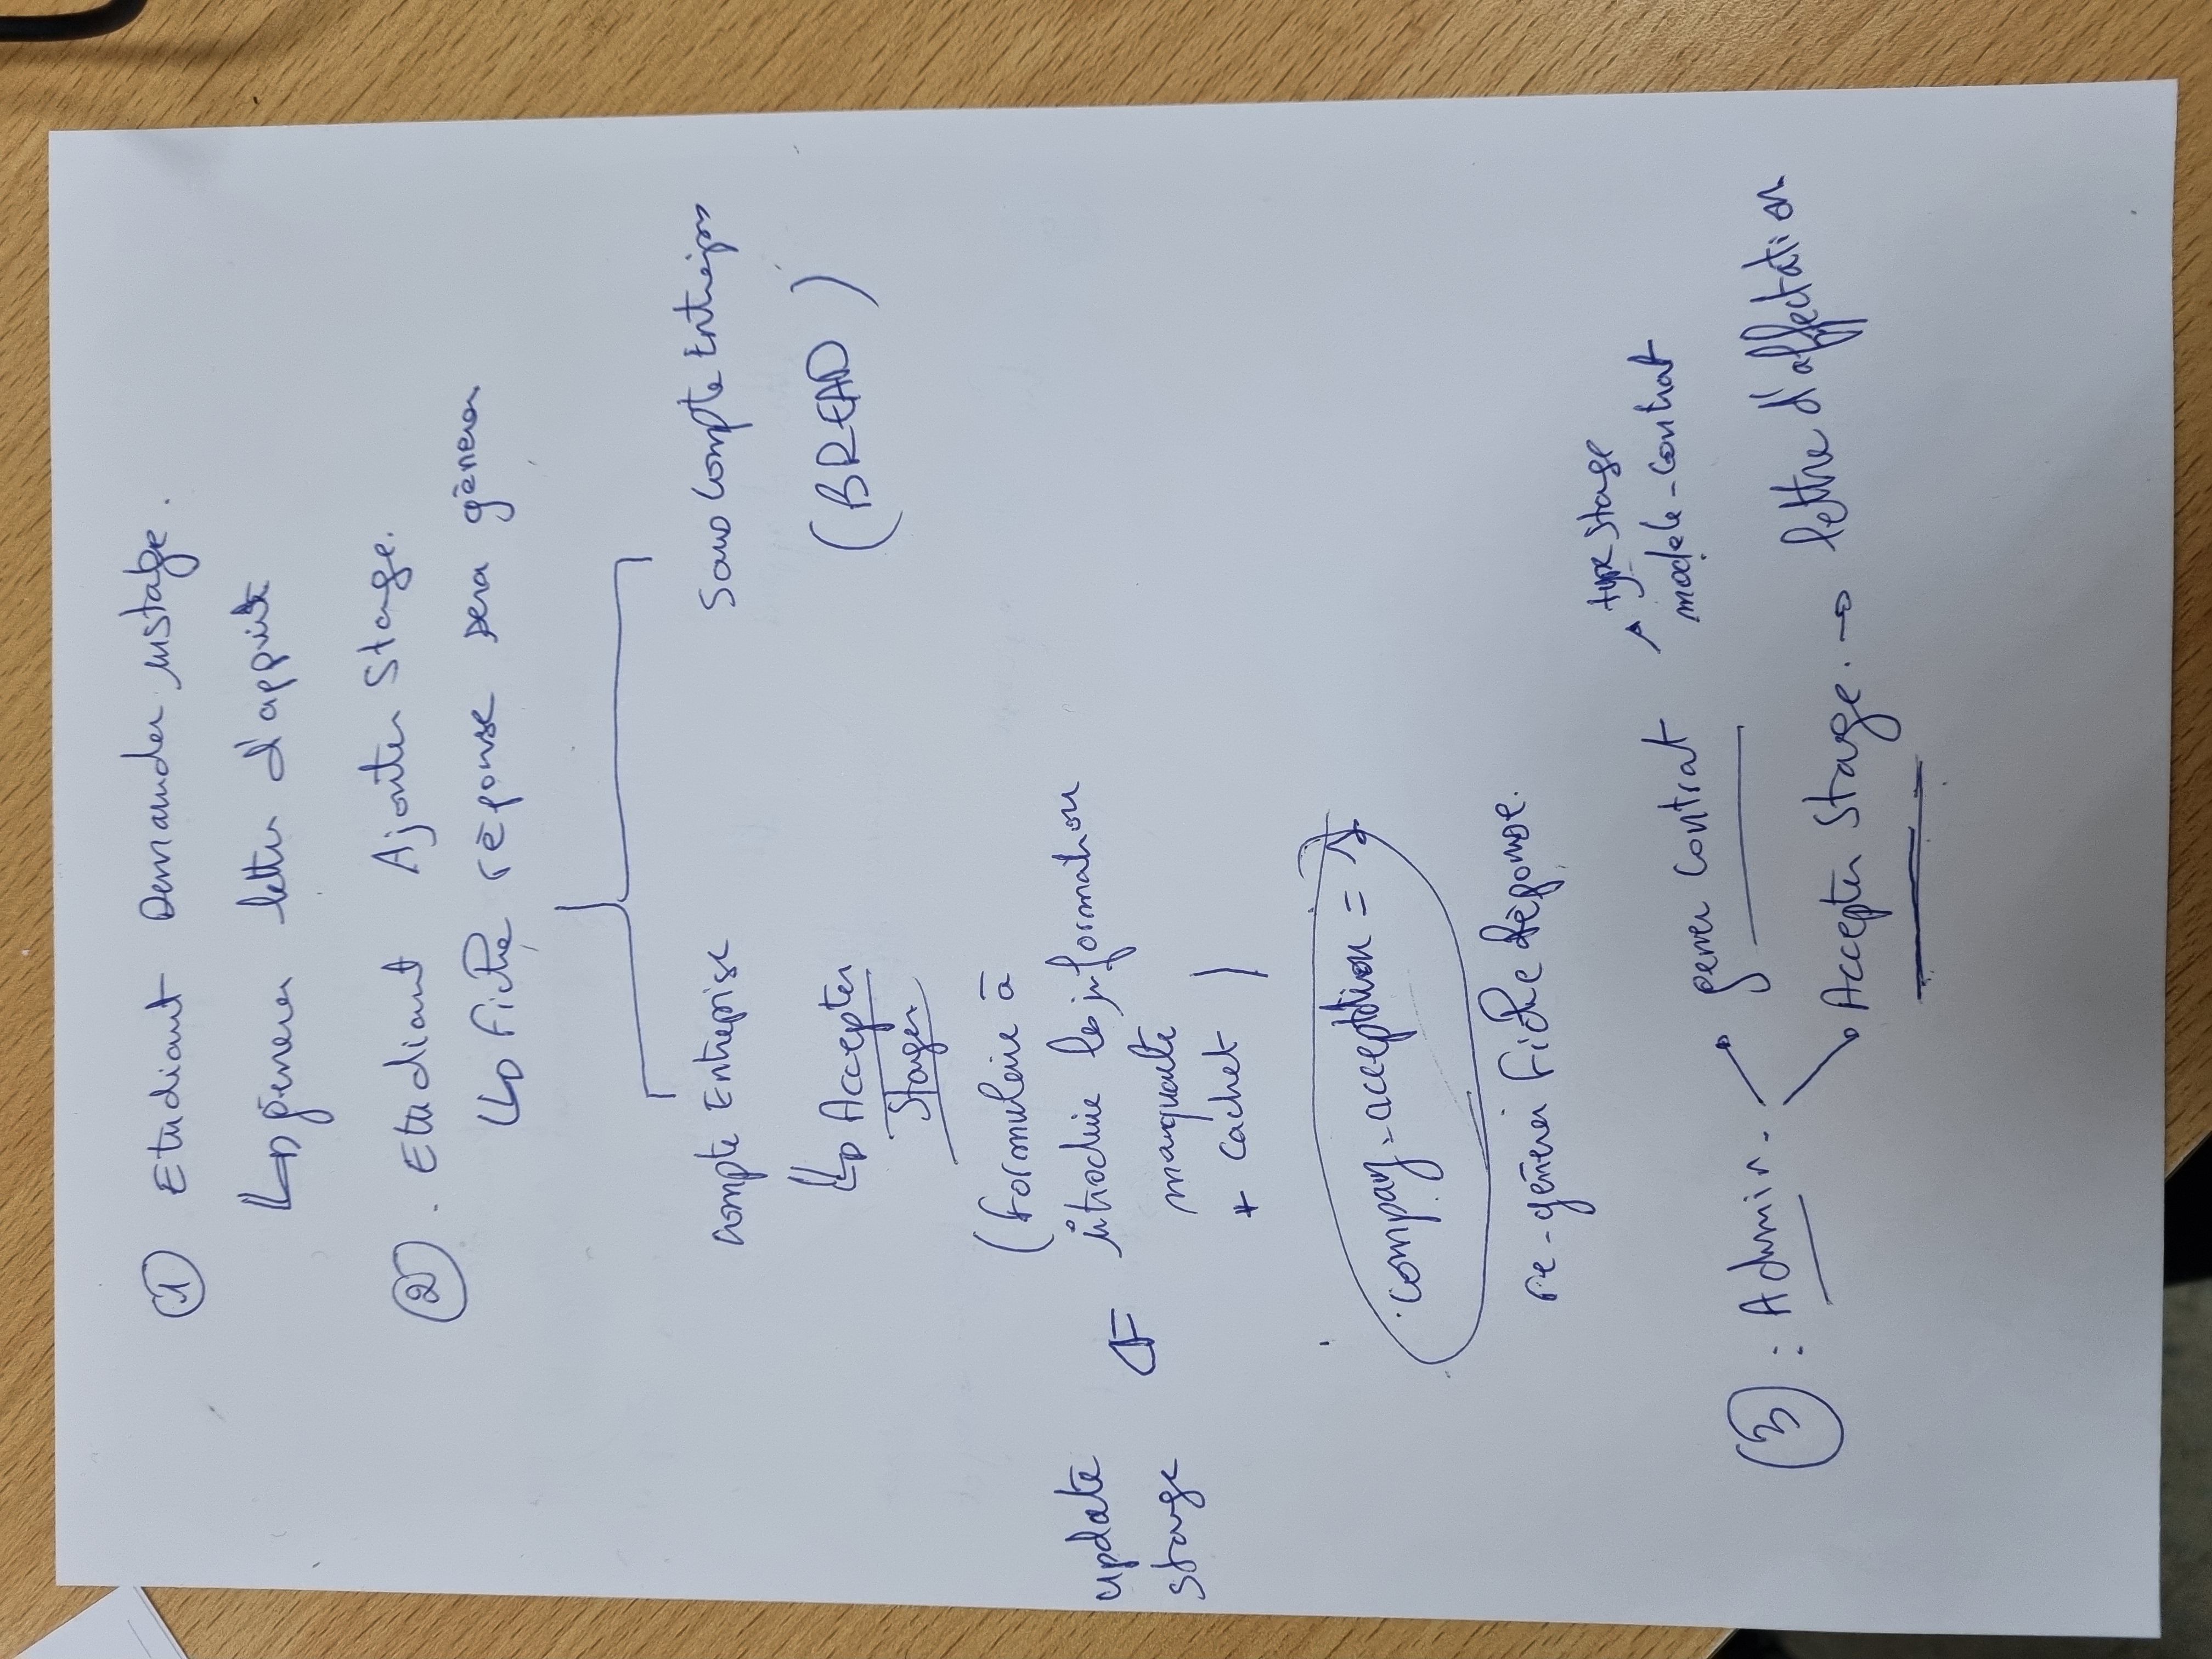 ① Etudiant Demander un stage.
génerer letter d'appuit
② . Etudiant Ajouter Stage.
Fiche réponse sera génerer
compte Entreprise
Sans Compte Entreprise
Accepter
(BREAD)
Stager
(Formulaire à
introduire les information
manquante
+ cachet )
update
stage
company-acceptation = 1
re-génerer Fiche Réponse.
type stage
gener Contrat
modele-contrat
③ : Admin.
Accepter Stage. → lettre d'affectation